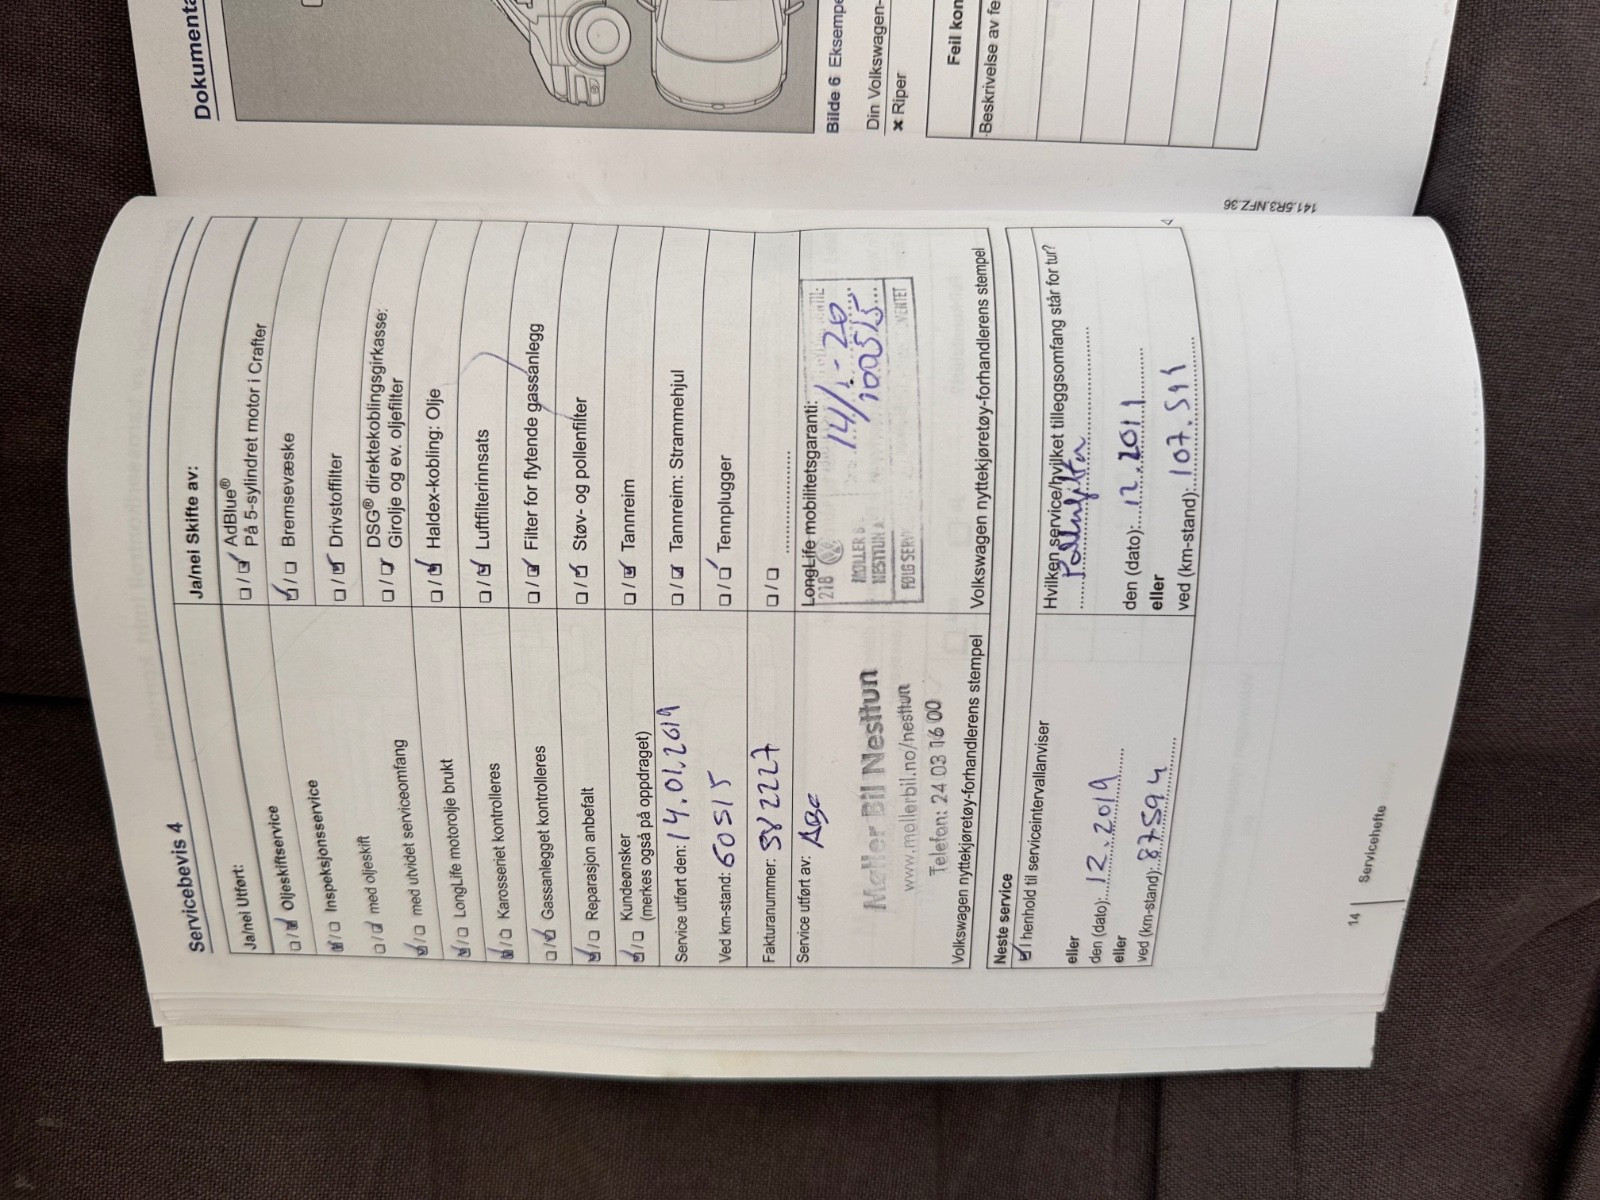 Servicebevis 4
Ja/nei Utført:
☐/☑ Oljeskiftservice
☑/☐ Inspeksjonsservice
☐/☑ med oljeskift
☑/☐ med utvidet serviceomfang
☑/☐ LongLife motorolje brukt
☑/☐ Karosseriet kontrolleres
☐/☑ Gassanlegget kontrolleres
☑/☐ Reparasjon anbefalt
☑/☐ Kundeønsker
(merkes også på oppdraget)
Service utført den: 14.01.2019
Ved km-stand: 60515
Fakturanummer: 582227
Service utført av:
Møller Bil Nesttun
www.mollerbil.no/nesttun
Telefon: 24 03 16 00
Volkswagen nyttekjøretøy-forhandlerens stempel
Ja/nei Skifte av:
☐/☑ AdBlue®
På 5-sylindret motor i Crafter
☑/☐ Bremsevæske
☐/☑ Drivstoffilter
☐/☑ DSG® direktekoblingsgirkasse:
Girolje og ev. oljefilter
☐/☑ Haldex-kobling: Olje
☐/☑ Luftfilterinnsats
☐/☑ Filter for flytende gassanlegg
☐/☑ Støv- og pollenfilter
☐/☑ Tannreim
☐/☑ Tannreim: Strammehjul
☐/☑ Tennplugger
☐/☐ ....................
LongLife mobilitetsgaranti:
218
14/1-20
MØLLER B
100515
NESTTUN
FØLG SERV
VENTET
Volkswagen nyttekjøretøy-forhandlerens stempel
Neste service
☑ I henhold til serviceintervallanviser
eller
den (dato): 12.2019
eller
ved (km-stand): 87594
Hvilken service/hvilket tilleggsomfang står for tur?
Pollenfilter
den (dato): 12.2011
eller
ved (km-stand): 107.544
14
Servicehefte
Dokumenta
Bilde 6 Eksempe
Din Volkswagen-
✖ Riper
Feil kon
Beskrivelse av fe
141.5R3.NFZ.36